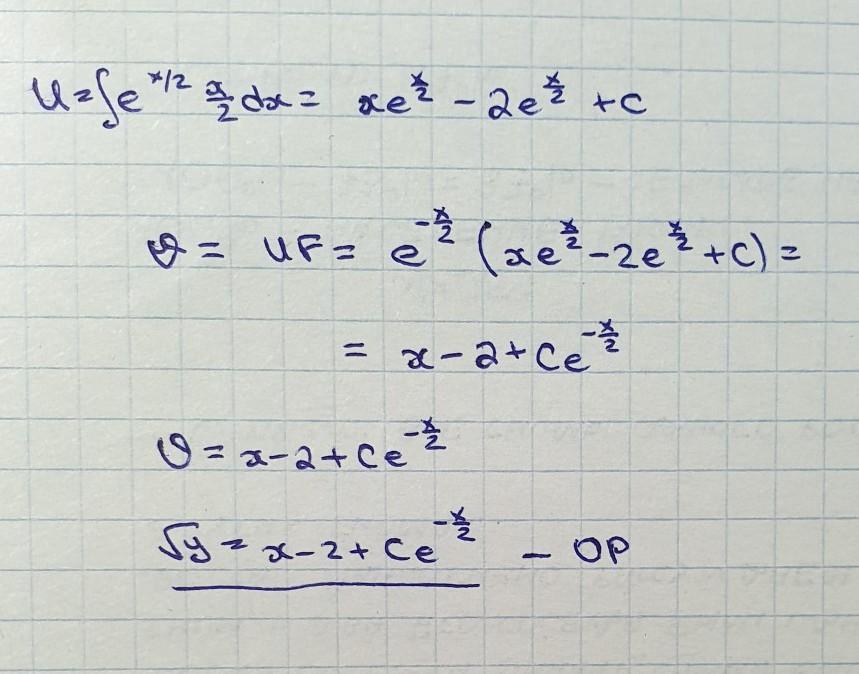 U=∫e^{x/2} x/2 dx = xe^{x/2} - 2e^{x/2} + C
ϑ = UF = e^{-x/2} (xe^{x/2} - 2e^{x/2} + C) =
= x - 2 + Ce^{-x/2}
ϑ = x - 2 + Ce^{-x/2}
√y = x - 2 + Ce^{-x/2} - ОР